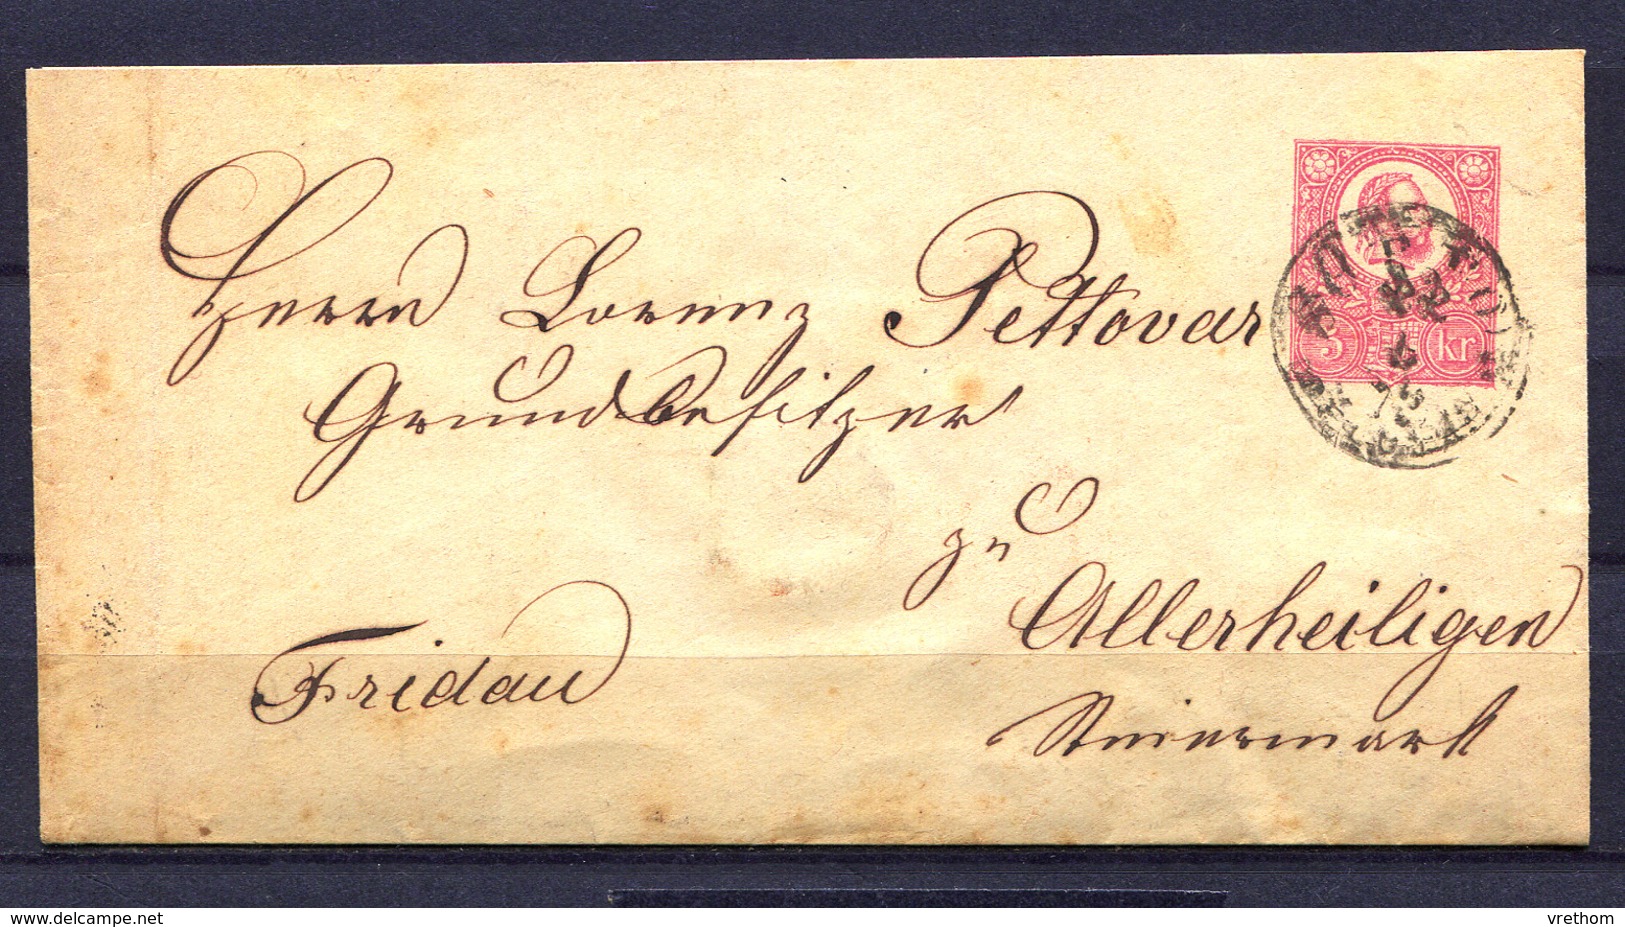 Herrn Lorenz Pettovar
Grundbesitzer
zu
Allerheiligen
Fridau
Steiermark
5 kr
delcampe.net
vrethom